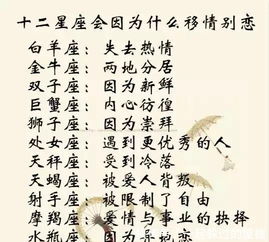 十二星座会因为什么移情别恋
白羊座：失去热情
金牛座：两地分居
双子座：因为新鲜
巨蟹座：内心彷徨
狮子座：因为崇拜
处女座：遇到更优秀的人
天秤座：受到冷落
天蝎座：被爱人背叛
射手座：被限制了自由
摩羯座：爱情与事业的抉择
水瓶座：因为异地恋